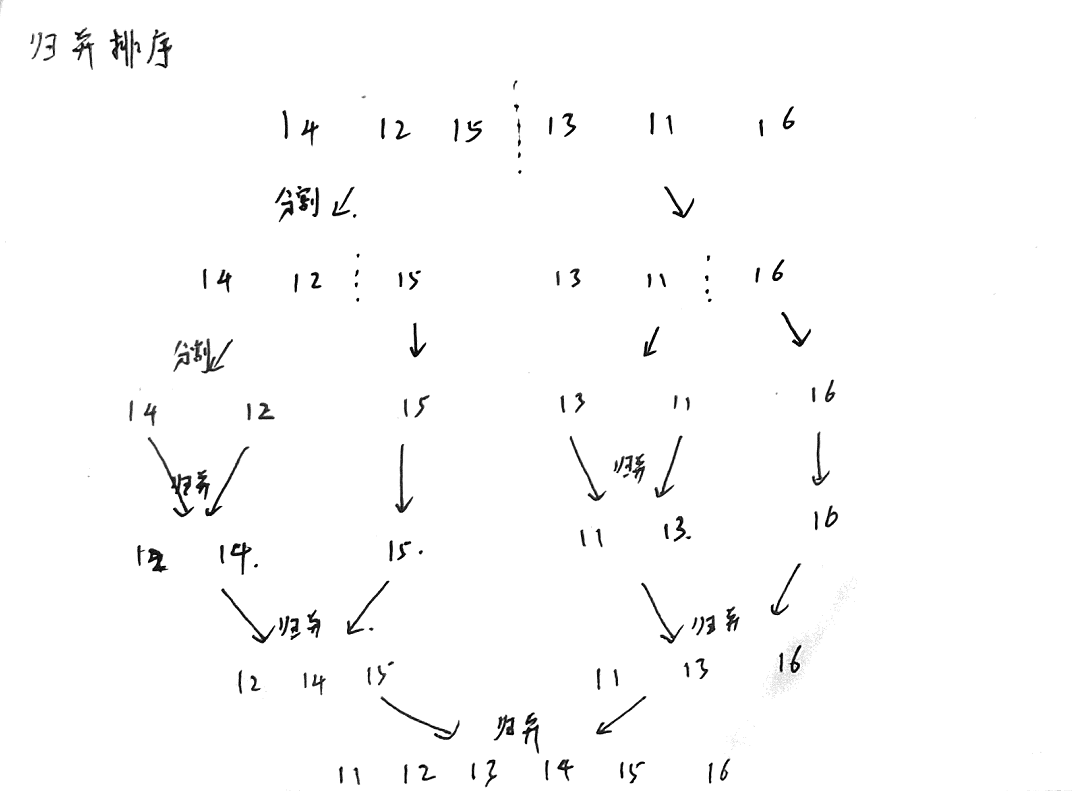 归并排序
14 12 15 13 11 16
分割
14 12 15 13 11 16
分割
14 12 15 13 11 16
归并 归并
12 14. 15. 11 13. 16
归并 归并
12 14 15 11 13 16
归并
11 12 13 14 15 16